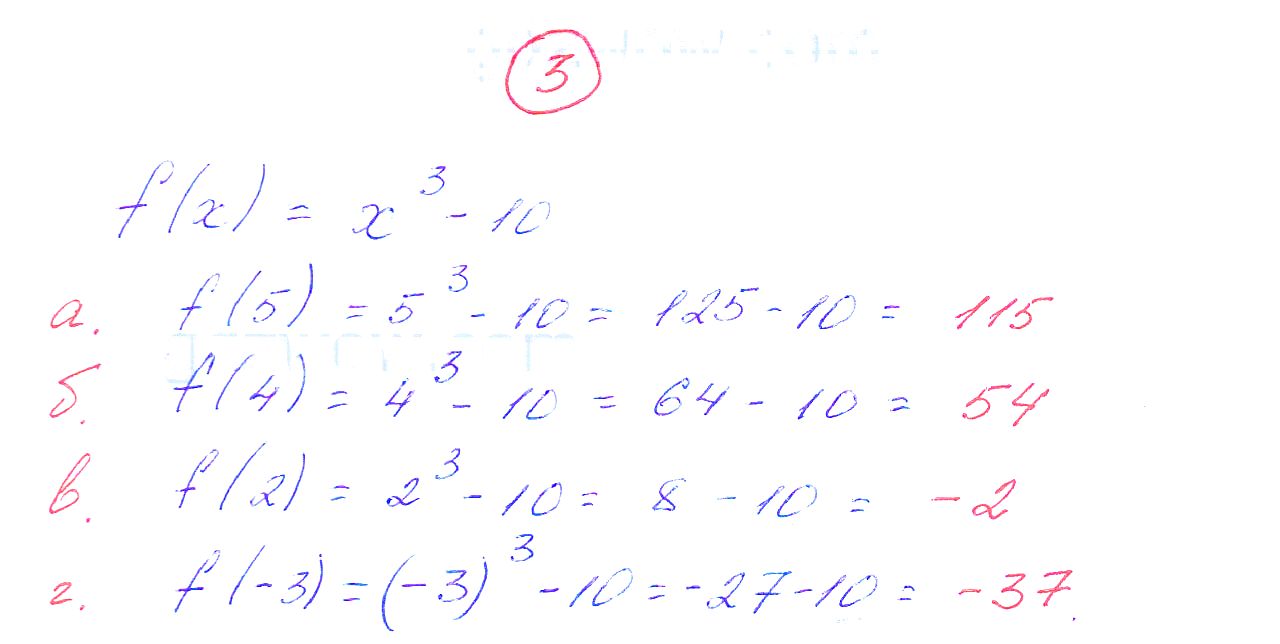 3
f(x) = x³ - 10
а. f(5) = 5³ - 10 = 125 - 10 = 115
б. f(4) = 4³ - 10 = 64 - 10 = 54
в. f(2) = 2³ - 10 = 8 - 10 = -2
г. f(-3) = (-3)³ - 10 = -27 - 10 = -37.